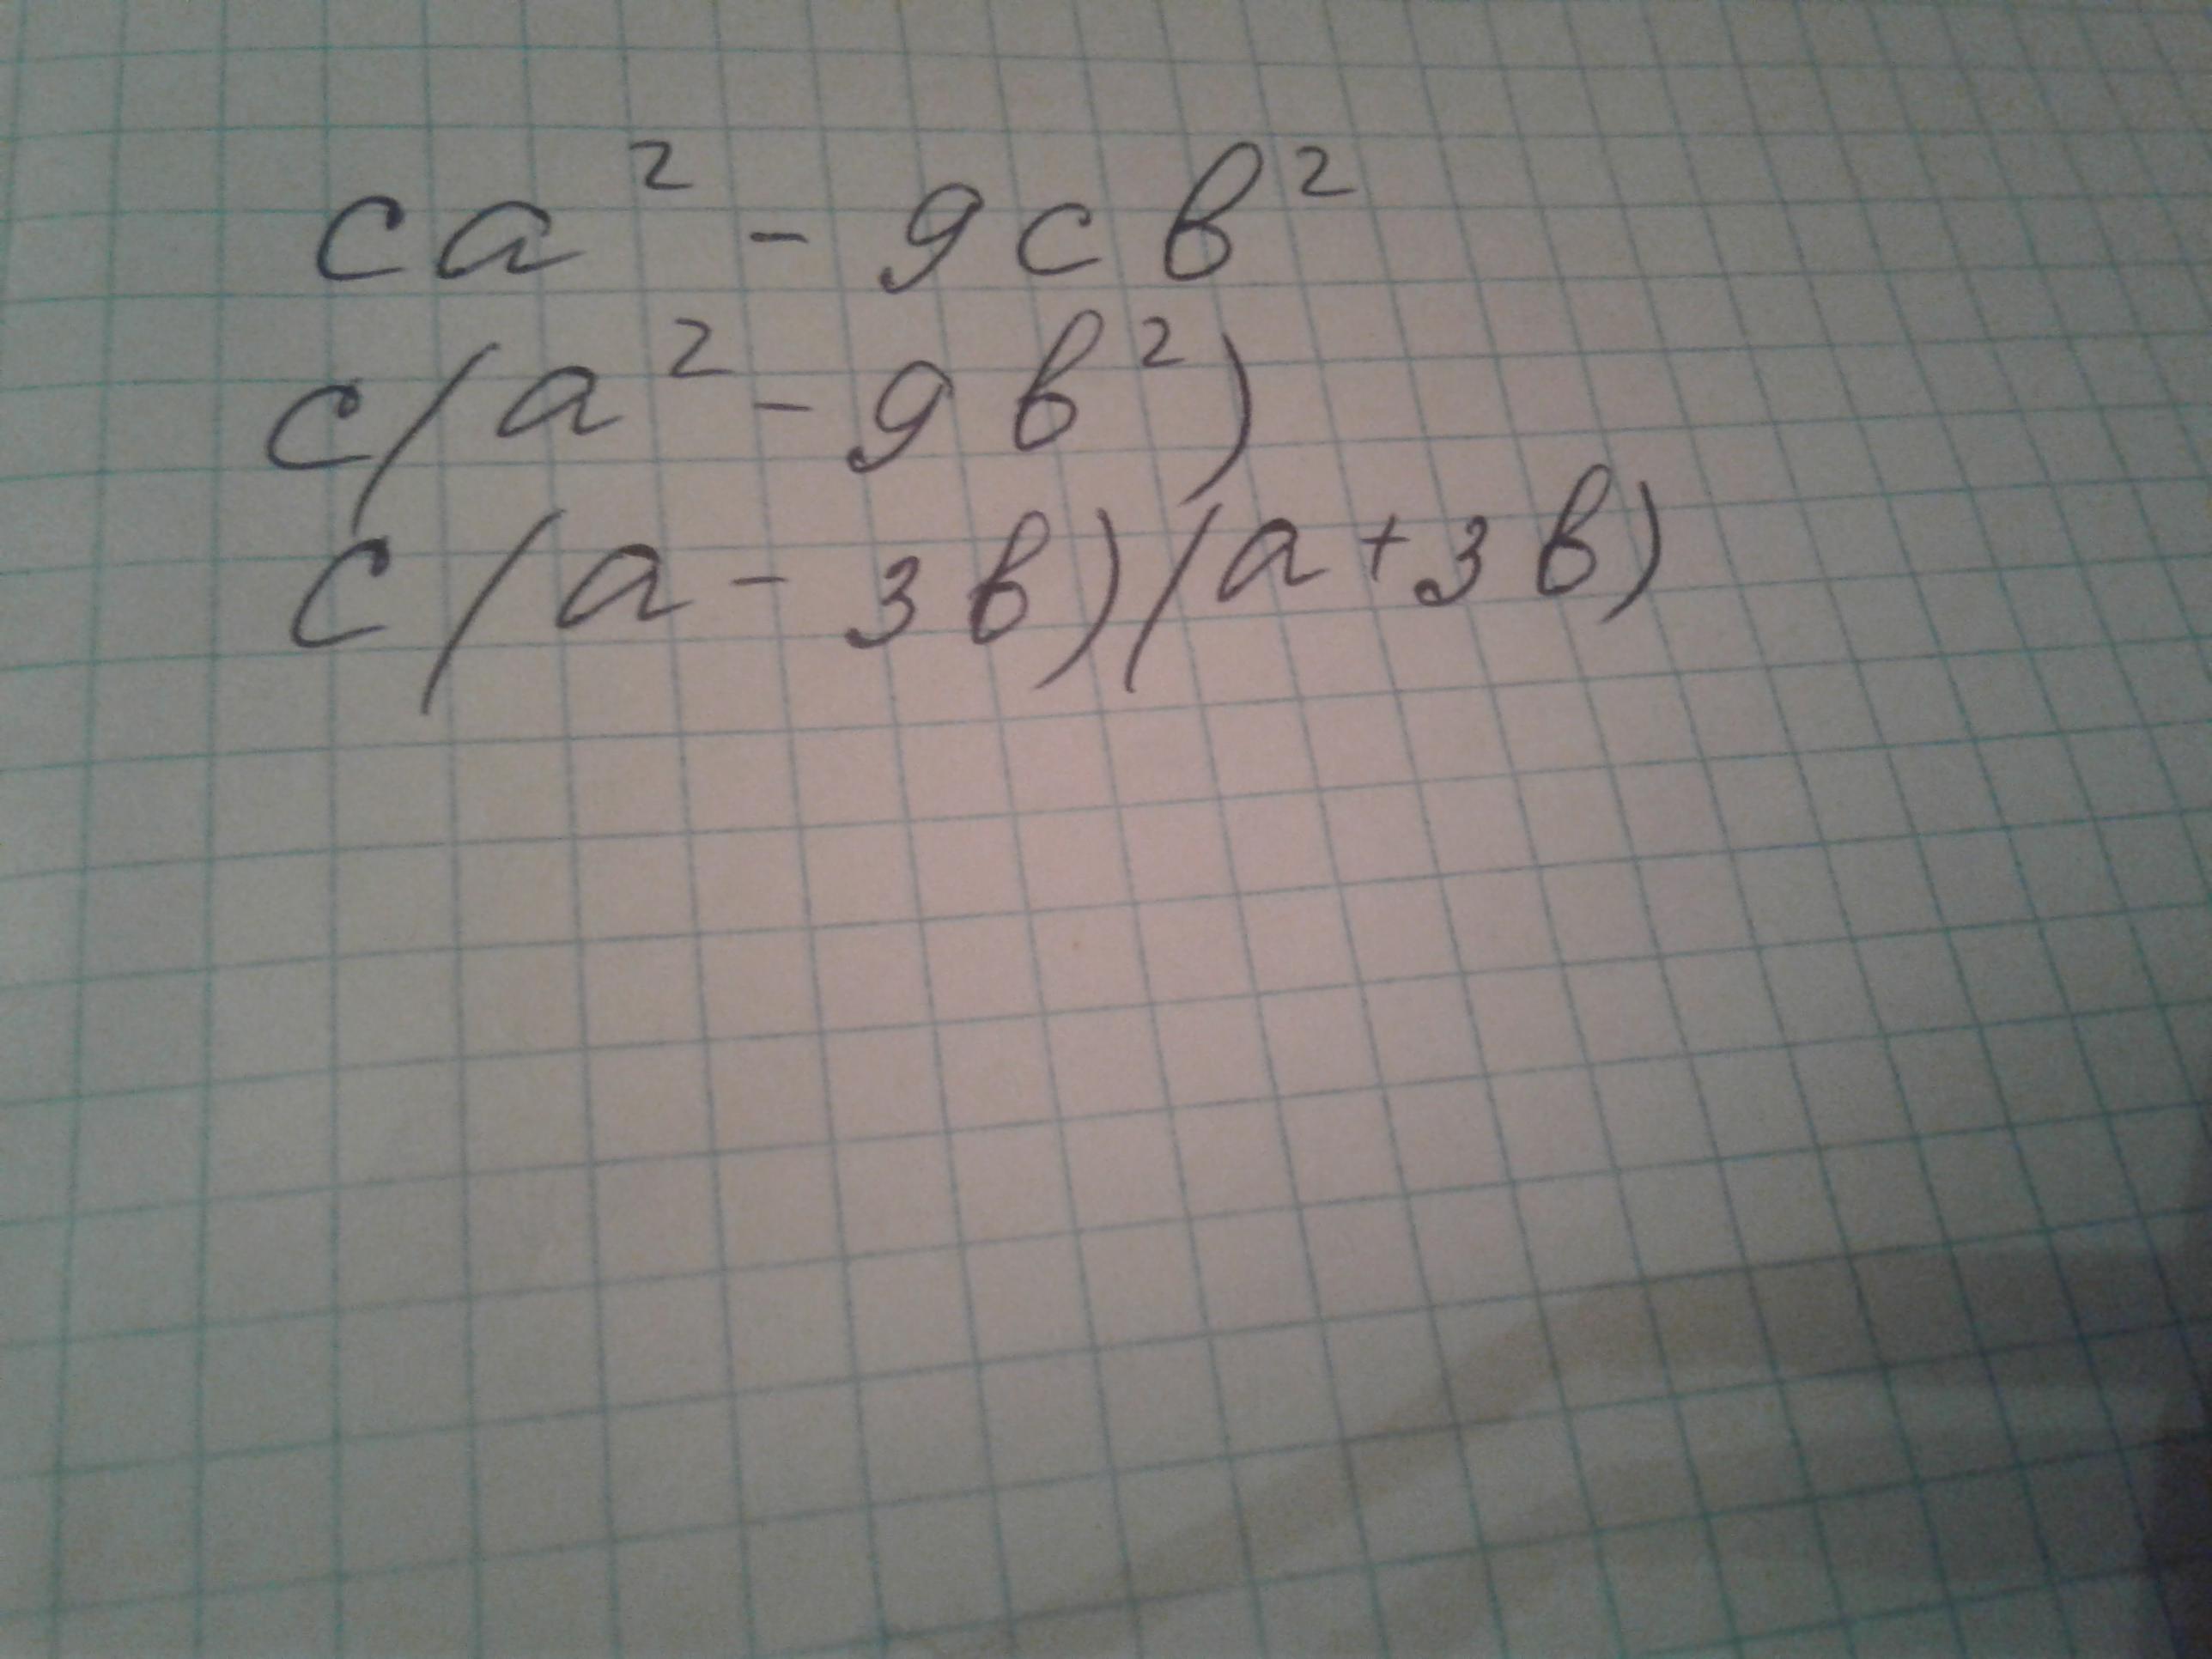 ca² - 9cb²
c(a² - 9b²)
c(a - 3b)(a + 3b)